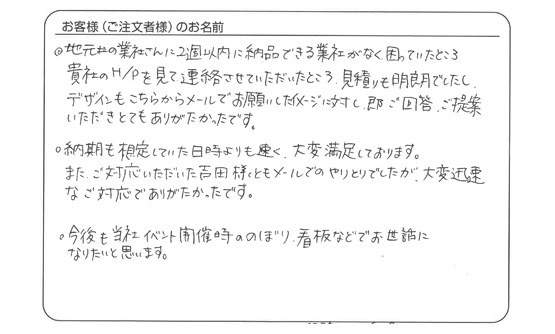 お客様（ご注文者様）のお名前
◎地元の業社さんに2週以内に納品できる業社がなく、困っていたところ
貴社のH/Pを見て連絡させていただいたところ、見積りも明朗でしたし、
デザインもこちらからメールでお願いしたイメージに対し、即ご回答、ご提案
いただきとてもありがたかったです。
○納期も想定していた日時よりも速く、大変満足しております。
また、ご対応いただいた芦田様ともメールでのやりとりでしたが、大変迅速
なご対応でありがたかったです。
○今後も当社イベント開催時ののぼり、看板などでお世話に
なりたいと思います。